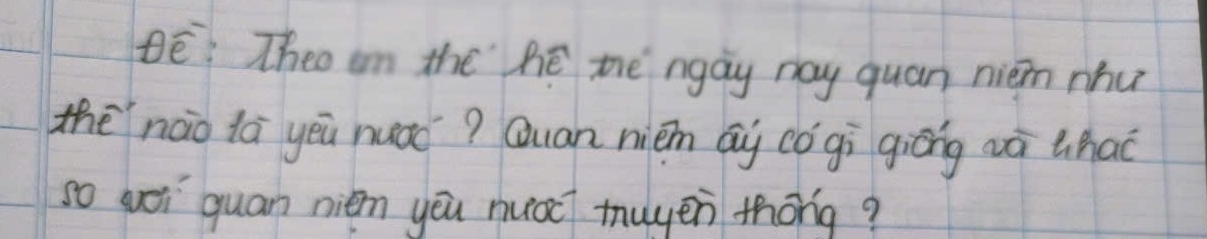 Đề: Theo em thế hệ trẻ ngày nay quan niệm như
thế nào là yêu nước? Quan niệm ấy có gì giống và khác
so với quan niệm yêu nước truyền thống?